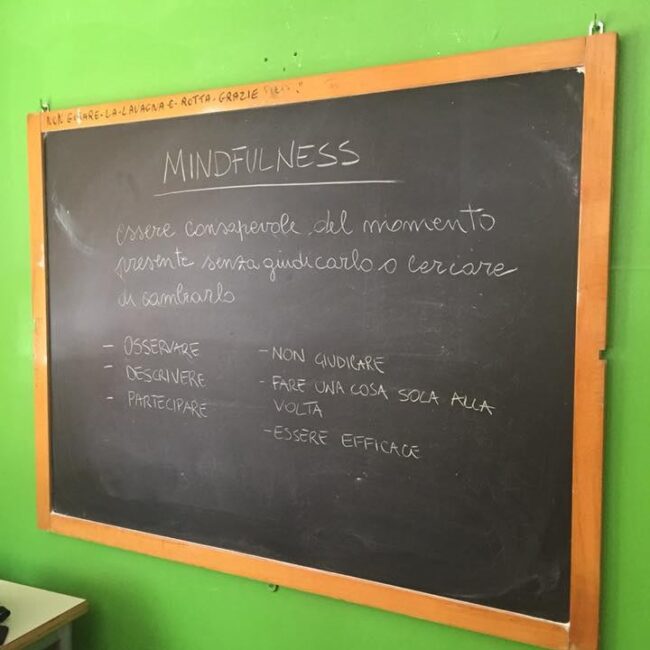 NON GIRARE-LA-LAVAGNA-È-ROTTA-GRAZIE
MINDFULNESS
essere consapevole del momento
presente senza giudicarlo o cercare
di cambiarlo
- OSSERVARE
- DESCRIVERE
- PARTECIPARE
- NON GIUDICARE
- FARE UNA COSA SOLA ALLA
VOLTA
- ESSERE EFFICACE